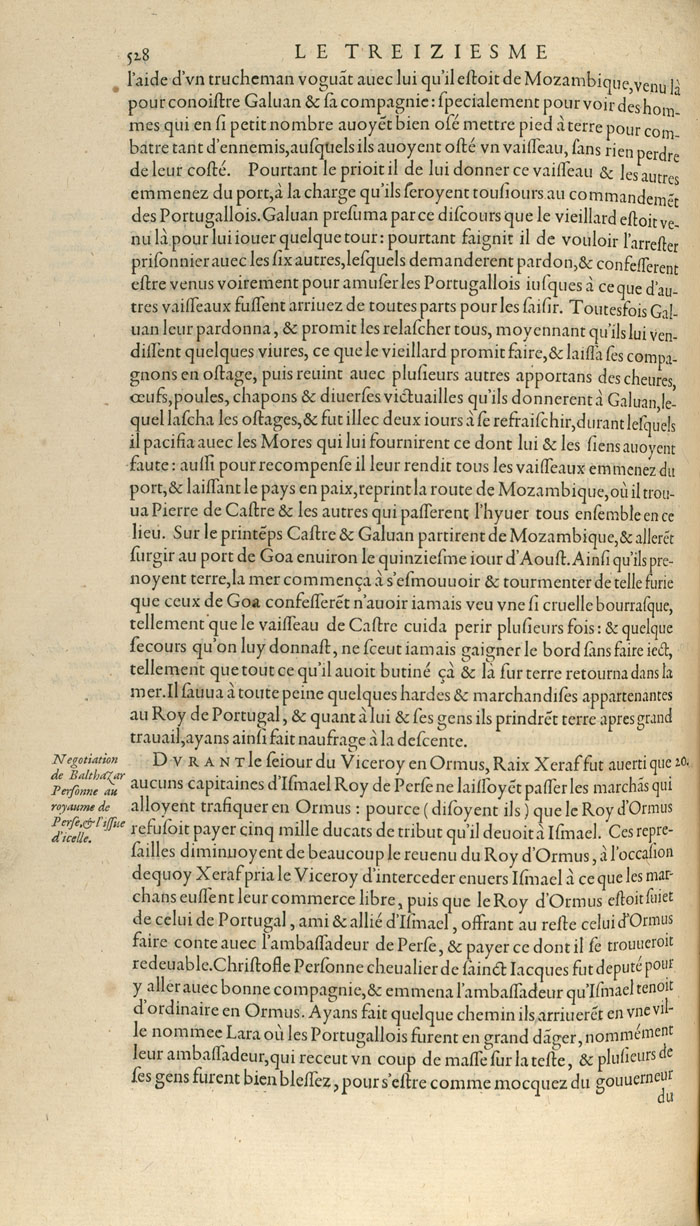 528 LE TREIZIESME
l'aide d'vn trucheman voguãt auec lui qu'il eſtoit de Mozambique, venu là
pour conoiſtre Galuan & ſa compagnie: ſpecialement pour voir des hom-
mes qui en ſi petit nombre auoyẽt bien oſé mettre pied à terre pour com-
batre tant d'ennemis, auſquels ils auoyent oſté vn vaiſſeau, ſans rien perdre
de leur coſté. Pourtant le prioit il de lui donner ce vaiſſeau & les autres
emmenez du port, à la charge qu'ils ſeroyent touſiours au commandemẽt
des Portugallois. Galuan preſuma par ce diſcours que le vieillard eſtoit ve-
nu là pour lui iouer quelque tour: pourtant faignit il de vouloir l'arreſter
priſonnier auec les ſix autres, leſquels demanderent pardon, & confeſſerent
eſtre venus voirement pour amuſer les Portugallois iuſques à ce que d'au-
tres vaiſſeaux fuſſent arriuez de toutes parts pour les ſaiſir. Toutesfois Gal-
uan leur pardonna, & promit les relaſcher tous, moyennant qu'ils lui ven-
diſſent quelques viures, ce que le vieillard promit faire, & laiſſa ſes compa-
gnons en oſtage, puis reuint auec pluſieurs autres apportans des cheures,
œufs, poules, chapons & diuerſes victuailles qu'ils donnerent à Galuan, le-
quel laſcha les oſtages, & fut illec deux iours à ſe refraiſchir, durant leſquels
il pacifia auec les Mores qui lui fournirent ce dont lui & les ſiens auoyent
faute: auſſi pour recompenſe il leur rendit tous les vaiſſeaux emmenez du
port, & laiſſant le pays en paix, reprint la route de Mozambique, où il trou-
ua Pierre de Caſtre & les autres qui paſſerent l'hyuer tous enſemble en ce
lieu. Sur le printẽps Caſtre & Galuan partirent de Mozambique, & allerẽt
ſurgir au port de Goa enuiron le quinzieſme iour d'Aouſt. Ainſi qu'ils pre-
noyent terre, la mer commença à s'eſmouuoir & tourmenter de telle furie
que ceux de Goa confeſſerẽt n'auoir iamais veu vne ſi cruelle bourraſque,
tellement que le vaiſſeau de Caſtre cuida perir pluſieurs fois: & quelque
ſecours qu'on luy donnaſt, ne ſceut iamais gaigner le bord ſans faire iect,
tellement que tout ce qu'il auoit butiné çà & là ſur terre retourna dans la
mer. Il ſauua à toute peine quelques hardes & marchandiſes appartenantes
au Roy de Portugal, & quant à lui & ſes gens ils prindrẽt terre apres grand
trauail, ayans ainſi fait naufrage à la deſcente.
Negotiation
de Balthazar
Perſonne au
royaume de
Perſe, & l'iſſue
d'icelle.
DVRANT le ſeiour du Viceroy en Ormus, Raix Xeraf fut auerti que 20.
aucuns capitaines d'Iſmael Roy de Perſe ne laiſſoyẽt paſſer les marchãs qui
alloyent trafiquer en Ormus: pource (diſoyent ils) que le Roy d'Ormus
refuſoit payer cinq mille ducats de tribut qu'il deuoit à Iſmael. Ces repre-
ſailles diminuoyent de beaucoup le reuenu du Roy d'Ormus, à l'occaſion
dequoy Xeraf pria le Viceroy d'interceder enuers Iſmael à ce que les mar-
chans euſſent leur commerce libre, puis que le Roy d'Ormus eſtoit ſuiet
de celui de Portugal, ami & allié d'Iſmael, offrant au reſte celui d'Ormus
faire conte auec l'ambaſſadeur de Perſe, & payer ce dont il ſe trouueroit
redeuable. Chriſtofle Perſonne cheualier de ſainct Iacques fut deputé pour
y aller auec bonne compagnie, & emmena l'ambaſſadeur qu'Iſmael tenoit
d'ordinaire en Ormus. Ayans fait quelque chemin ils arriuerẽt en vne vil-
le nommee Lara où les Portugallois furent en grand dãger, nommément
leur ambaſſadeur, qui receut vn coup de maſſe ſur la teſte, & pluſieurs de
ſes gens furent bien bleſſez, pour s'eſtre comme mocquez du gouuerneur
du